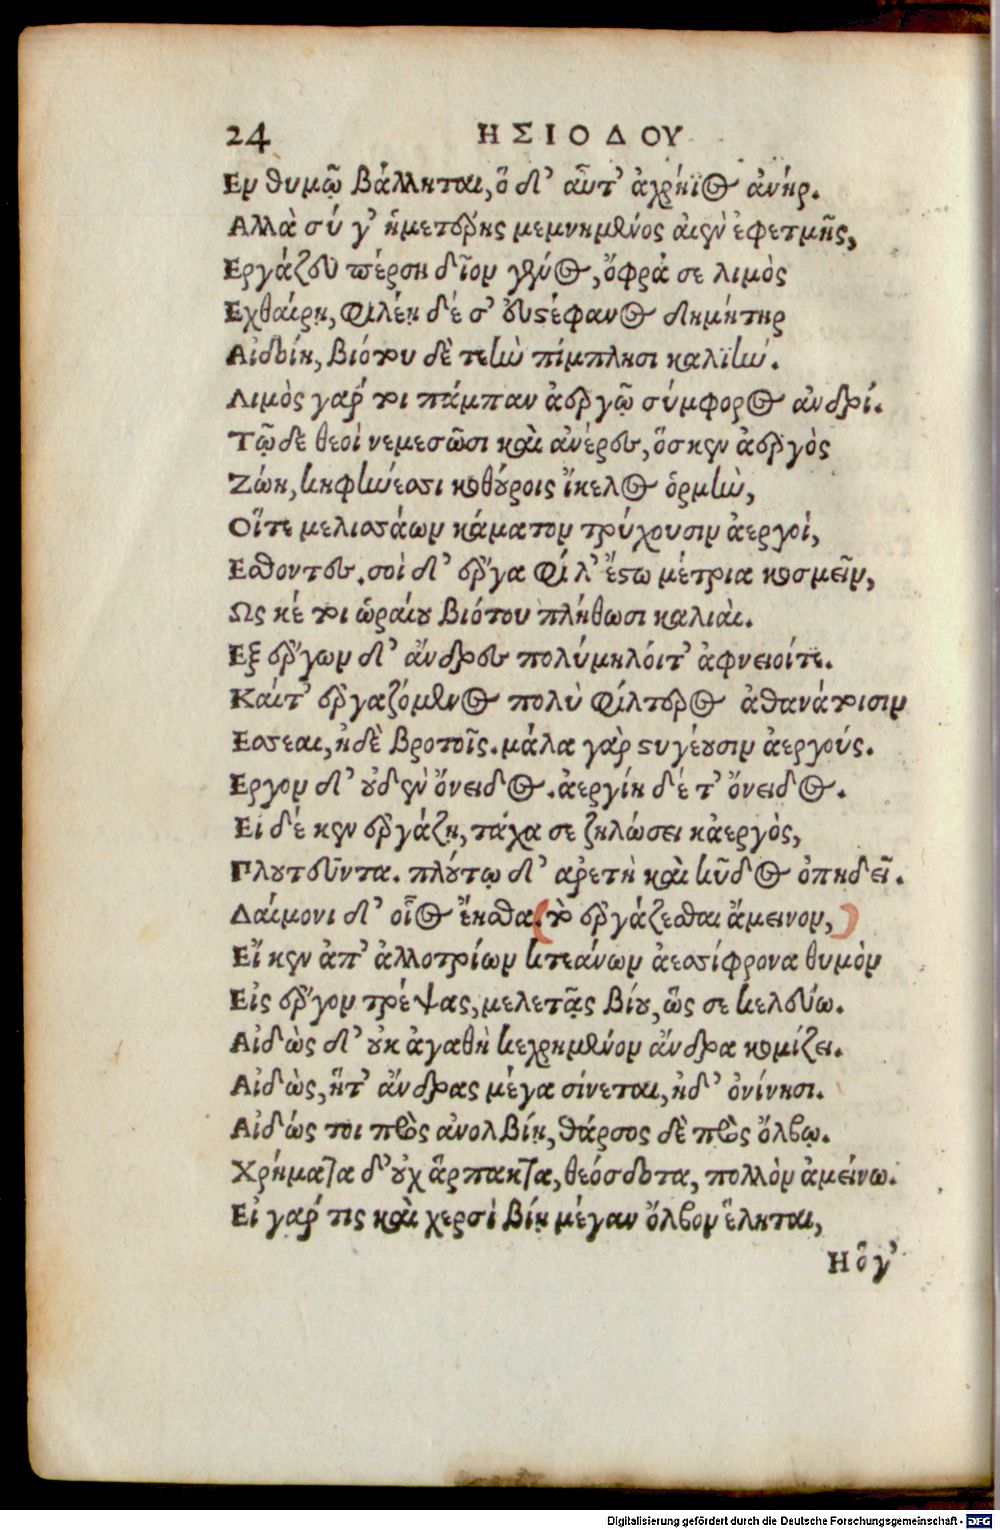 24 ΗΣΙΟΔΟΥ
Εν θυμῷ βάλληται, ὅ δ' αὖτ' ἀχρήϊος ἀνήρ.
Αλλὰ σύ γ' ἡμετέρης μεμνημένος αἰὲν ἐφετμῆς,
Εργάζευ πέρση δῖον γένος, ὄφρά σε λιμὸς
Εχθαίρῃ, φιλέῃ δέ σ' ἐυστέφανος δημήτηρ
Αἰδοίη, βιότου δὲ τεὴν πίμπλησι καλιήν.
Λιμὸς γάρ τοι πάμπαν ἀεργῷ σύμφορος ἀνδρί.
Τῷ δε θεοὶ νεμεσῶσι καὶ ἀνέρες, ὅς κεν ἀεργὸς
Ζώη, κηφήνεσσι κοθούροις ἴκελος ὁρμὴν,
Οἵτε μελισσάων κάματον τρύχουσιν ἀεργοί,
Εσθοντες. σοὶ δ' ἔργα φίλ' ἔστω μέτρια κοσμεῖν,
Ως κέ τοι ὡραίου βιότου πλήθωσι καλιαὶ.
Εξ ἔργων δ' ἄνδρες πολύμηλόιτ' ἀφνειοίτε.
Καίτ' ἐργαζόμενος πολὺ φίλτερος ἀθανάτοισιν
Εσσεαι, ἠδὲ βροτοῖς. μάλα γὰρ στυγέουσιν ἀεργούς.
Εργον δ' οὐδὲν ὄνειδος. ἀεργίη δέ τ' ὄνειδος.
Ει δέ κεν ἐργάζῃ, τάχα σε ζηλώσει κἀεργὸς,
Πλουτεῦντα. πλούτῳ δ' ἀρετὴ καὶ κῦδος ὀπηδεῖ.
Δαίμονι δ' οἷος ἔησθα. τὸ ἐργάζεσθαι ἄμεινον,
Εἴ κεν ἀπ' ἀλλοτρίων κτεάνων ἀεσίφρονα θυμὸν
Εἰς ἔργον τρέψας, μελετᾷς βίου, ὥς σε κελεύω.
Αἰδὼς δ' οὐκ ἀγαθὴ κεχρημένον ἄνδρα κομίζει.
Αἰδὼς, ἥτ' ἄνδρας μέγα σίνεται, ἠδ' ὀνίνησι.
Αἰδώς τοι πρὸς ἀνολβίῃ, θάρσος δὲ πρὸς ὄλβῳ.
Χρήματα δ' οὐχ ἅρπακτα, θεόσδοτα, πολλὸν ἀμείνω.
Εἰ γάρ τις καὶ χερσὶ βίῃ μέγαν ὄλβον ἕληται,
Η ὅγ'
Digitalisierung gefördert durch die Deutsche Forschungsgemeinschaft - DFG